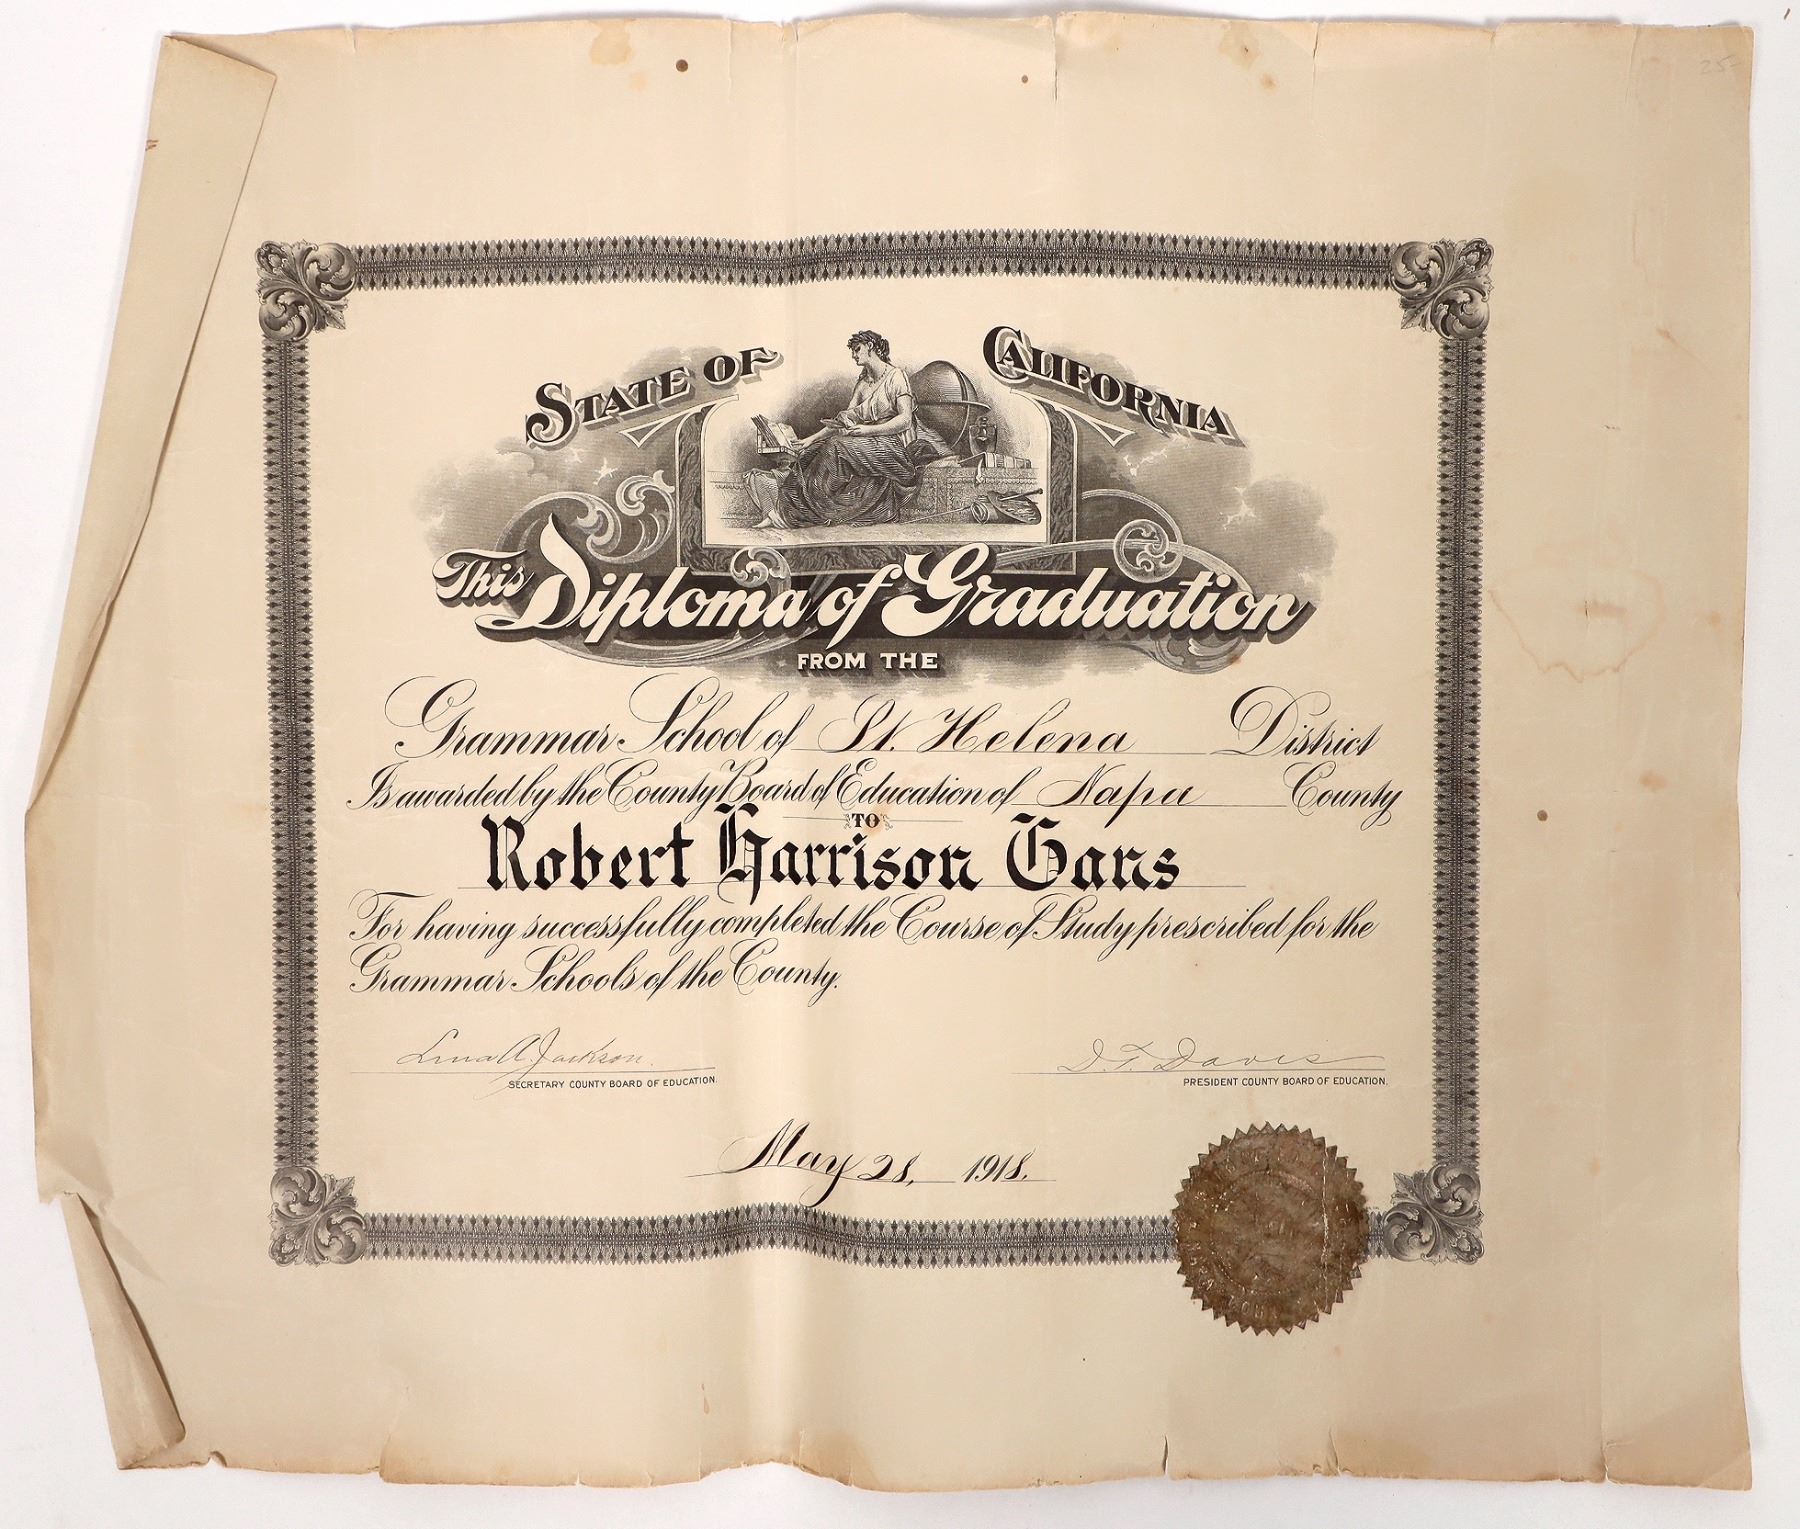 25-
STATE OF CALIFORNIA
This Diploma of Graduation
FROM THE
Grammar School of St. Helena District
Is awarded by the County Board of Education of Napa County
TO
Robert Harrison Gans
For having successfully completed the Course of Study prescribed for the
Grammar Schools of the County.
Lena A. Jackson.
SECRETARY COUNTY BOARD OF EDUCATION.
D. T. Davis
PRESIDENT COUNTY BOARD OF EDUCATION.
May 28, 1918.